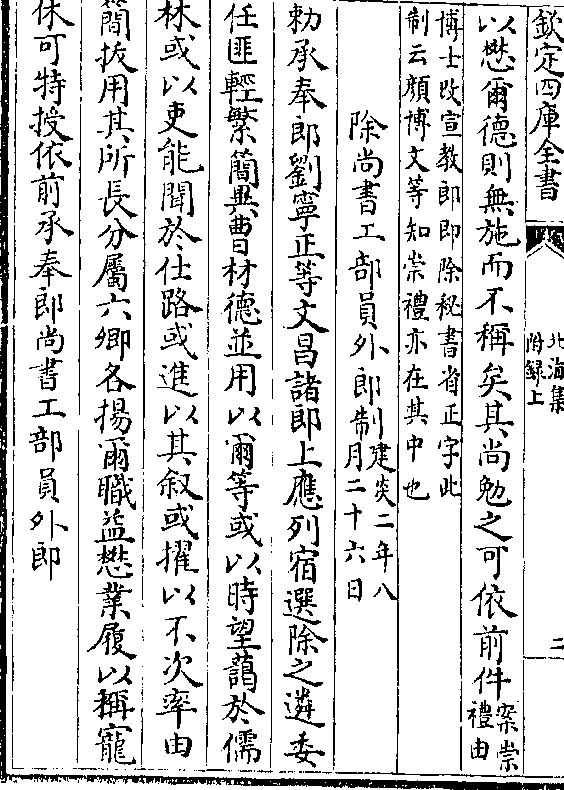 欽定四庫全書
北海集
附録上
二
以懋爾德則無施而不稱矣其尚勉之可依前件案崇禮由
博士改宣教郎即除秘書省正字此
制云顔博文等知崇禮亦在其中也
除尚書工部員外郎制建炎二年八月二十六日
勅承奉郎劉寧正等文昌諸郎上應列宿選除之遴委
任匪輕繁簡異曹材德並用以爾等或以時望藹於儒
林或以吏能聞於仕路或進以其叙或擢以不次率由
簡拔用其所長分屬六卿各揚爾職益懋業履以稱寵
休可特授依前承奉郎尚書工部員外郎